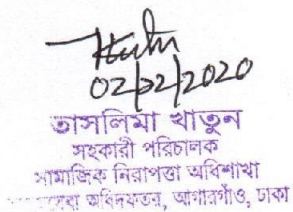 02/02/2020
তাসলিমা খাতুন
সহকারী পরিচালক
সামাজিক নিরাপত্তা অধিশাখা
অধিদফতর, আগারগাঁও, ঢাকা